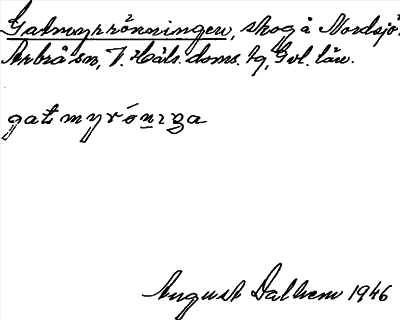 Gatmyrrönningen, skog å Nordsjö,
Arbrå sn, V. Häls. doms. tg, Gvl. län.
gatmyrónıga
August Dalhem 1946